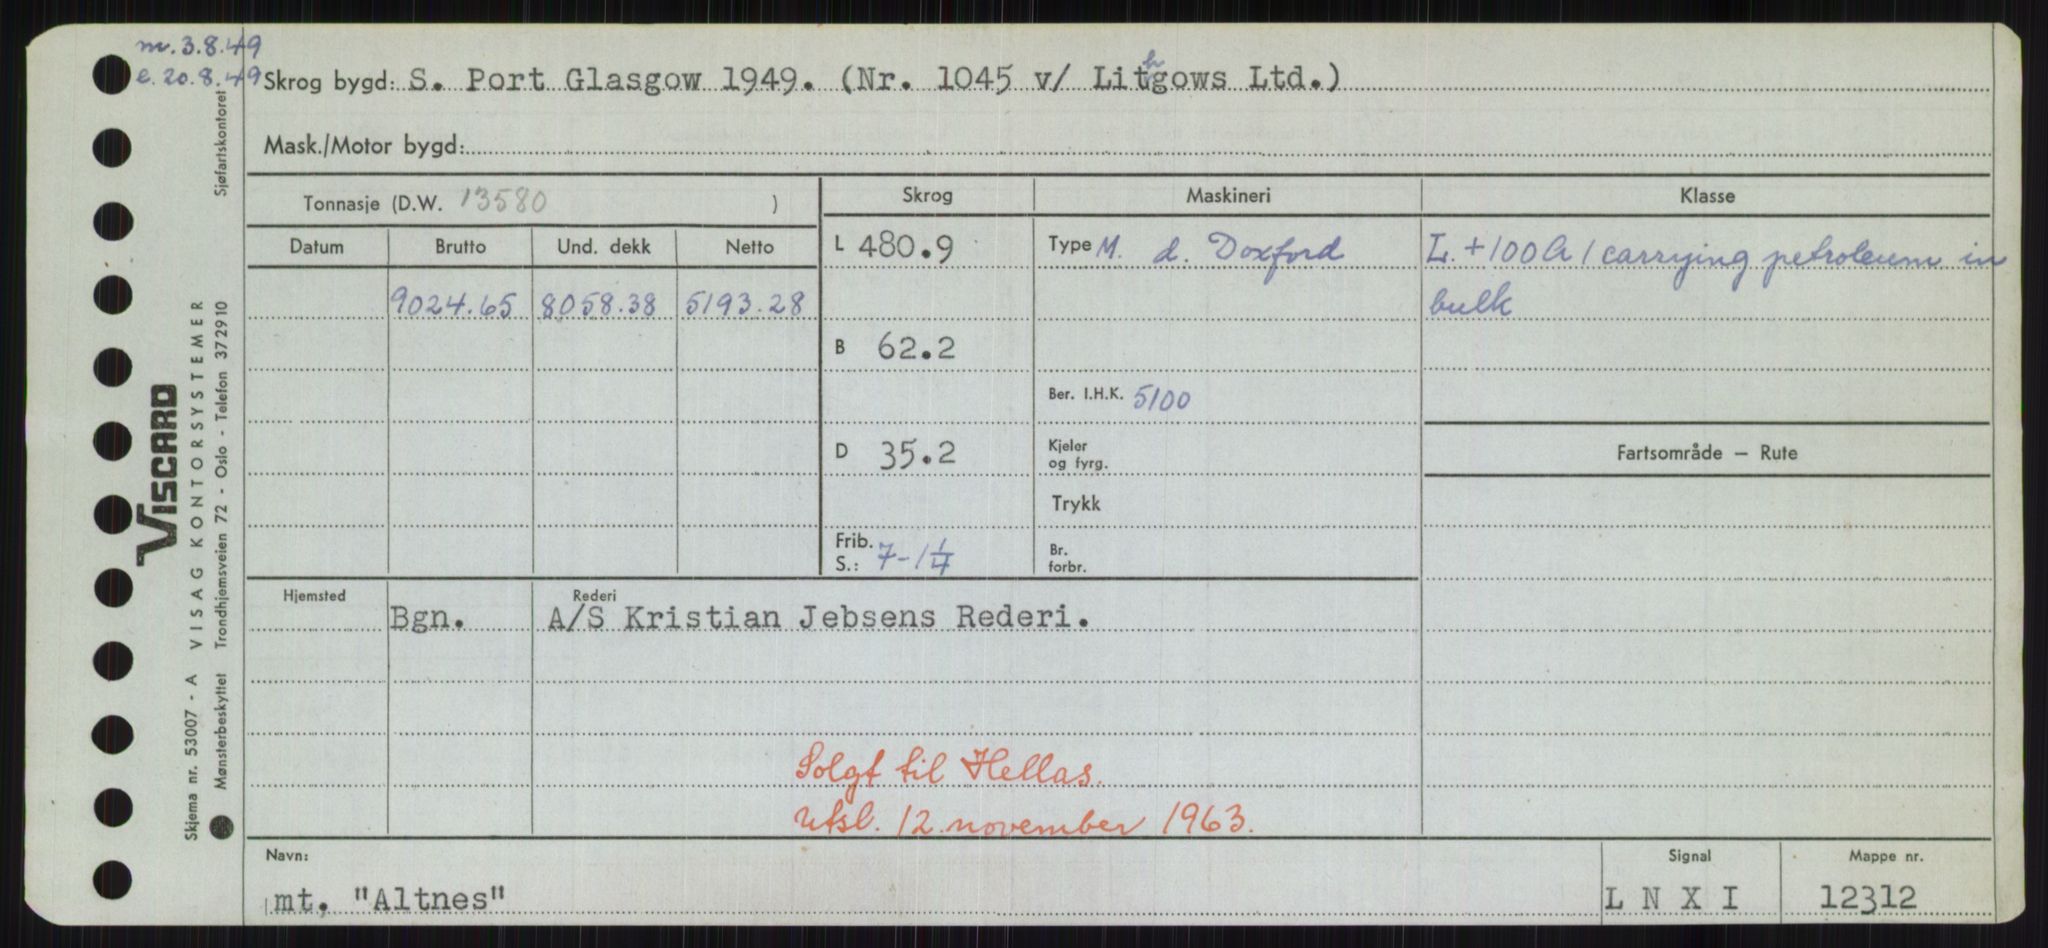 m. 3.8.49
e. 20.8.49
Skrog bygd: S. Port Glasgow 1949. (Nr. 1045 v/ Lithgows Ltd.)
Mask./Motor bygd:
Tonnasje (D.W. 13580 )
Skrog Maskineri Klasse
Datum Brutto Und. dekk Netto
L 480.9 Type M. d. Doxford L. +100A1 carrying petroleum in
9024.65 8058.38 5193.28 bulk
B 62.2
Ber. I.H.K. 5100
D 35.2 Kjeler
og fyrg.
Fartsområde — Rute
Trykk
Frib.
S.: 7-1 1/4
Br.
forbr.
Hjemsted Rederi
Bgn. A/S Kristian Jebsens Rederi.
Solgt til Hellas.
Utsl. 12. november 1963.
Navn: Signal Mappe nr.
mt. "Altnes" L N X I 12312
Sjøfartskontoret
VISCARD
VISAG KONTORSYSTEMER
Trondhjemsveien 72 - Oslo - Telefon 372910
Skjema nr. 53007 - A
Mønsterbeskyttet